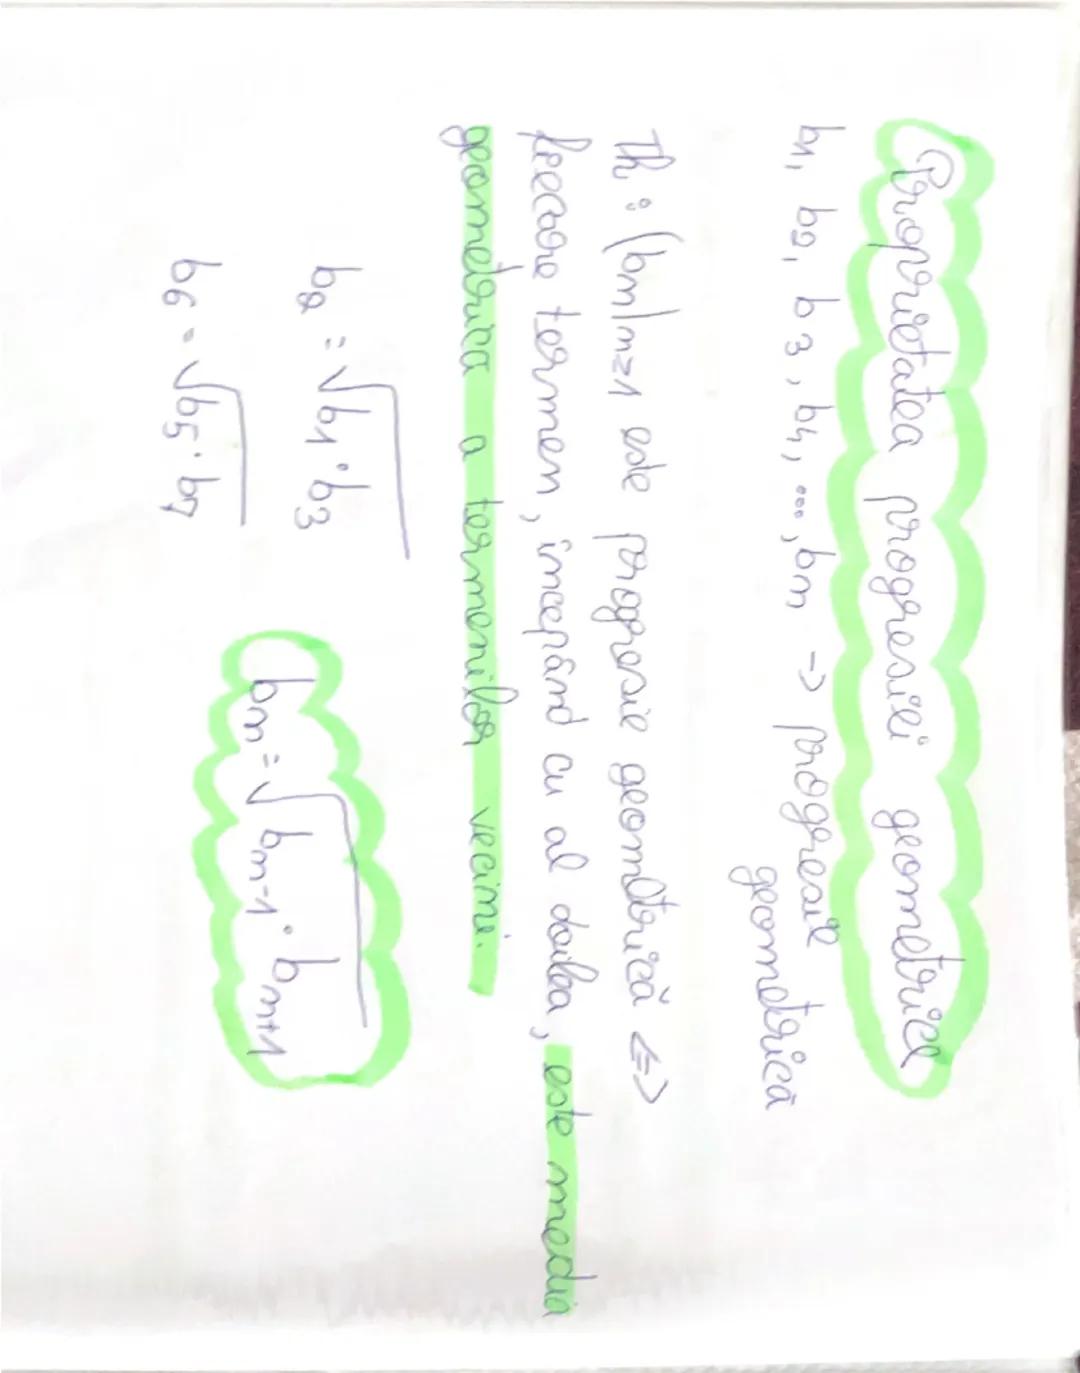 Proprietatea progresiei geometrice
b1, b2, b3, b4, ..., bn -> progresie
geometrică
Th: (bn)n≥1 este progresie geometrică <=>
fiecare termen, începând cu al doilea, este media
geometrica a termenilor vecini.
b2 = √b1·b3
b6 = √b5·b7
bn = √bn-1·bn+1